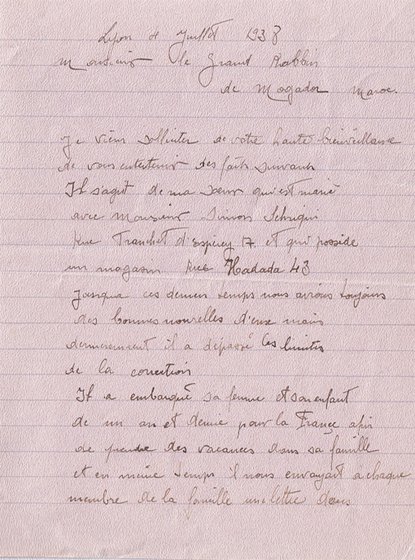 Lyon 8 Juillot 1938
Monsieur le Grand Rabbin
de Mogador Maroc
Je viens solliciter de votre haute bienveillance
de vous entretenir des faits suivants
Il sagit de ma sœur qui est marié
avec Monsieur Simon
Rue d'esperey 17 et qui posside
un magasin Rue Hadada 43
Jusqua ces dernier temps nous avions toujours
des bonnes nouvelles d'eux mais
dernierement il a depassé les limites
de la correction
Il a embarqué sa femme et son enfant
de un an et demie pour la France afin
de prendre des vacances dans sa famille
et en même temps il nous envoyait a chaque
membre de la famille une lettre dans